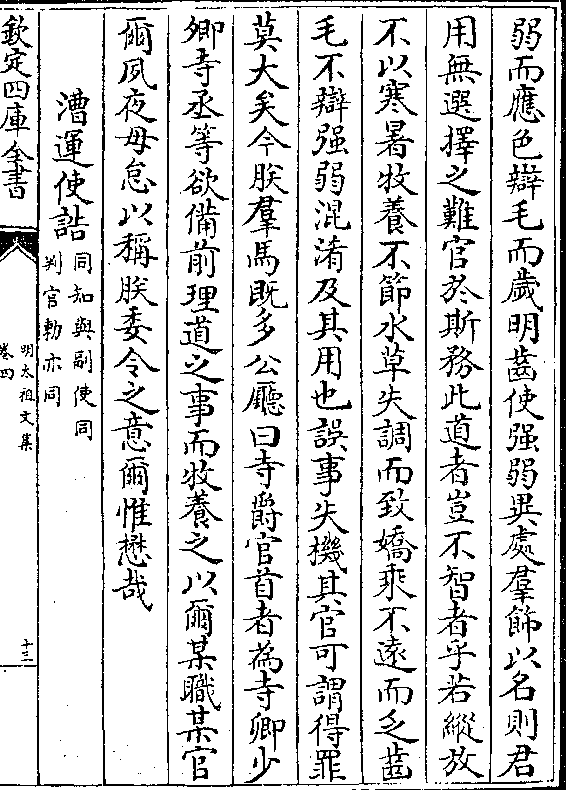 弱而應色辯毛而歲明齒使强弱異處羣飾以名則君
用無選擇之難官於斯務此道者豈不智者乎若縱放
不以寒暑牧養不節水草失調而致嬌乘不遠而乏齒
毛不辯强弱混淆及其用也誤事失機其官可謂得罪
莫大矣今朕羣馬既多公廳曰寺爵官首者為寺卿少
卿寺丞等欲備前理道之事而牧養之以爾某職某官
爾夙夜毋怠以稱朕委令之意爾惟懋哉
漕運使誥同知與副使同
判官勅亦同
欽定四庫全書
明太祖文集
卷四
十三